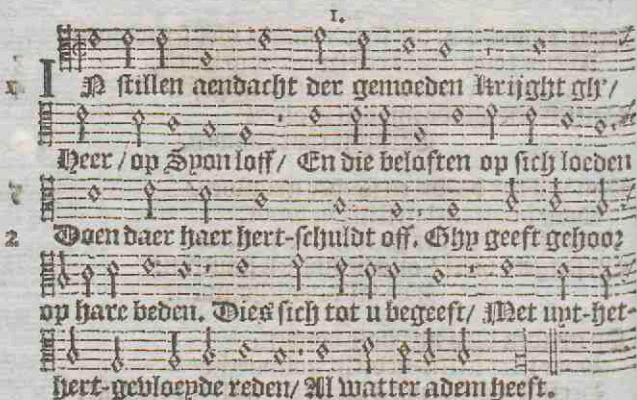 1.
1 IN stillen aendacht der gemoeden Krijght gh'/
Heer / op Syon loff / En die beloften op sich loeden
2 Doen daer haer hert-schuldt off. Ghy geeft gehoor
op hare beden. Dies sich tot u begeeft / Met uyt-het-
hert-gevloeyde reden / Al watter adem heeft.